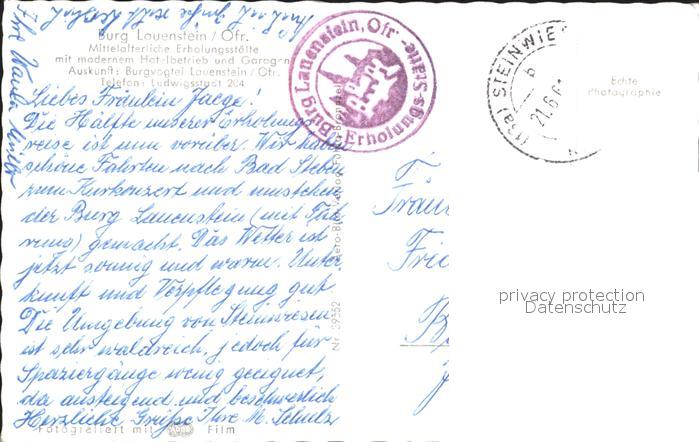 Burg Lauenstein / Ofr.
Mittelalterliche Erholungsstätte
mit modernem Hotelbetrieb und Garagen
Auskunft: Burgvogtei Lauenstein / Ofr.
Telefon: Ludwigsstadt 204
Liebes Fräulein Jaege!
Die Hälfte unserer Erholungs-
reise ist nun vorüber. Wir haben
schöne Fahrten nach Bad Steben
zum Kurkonzert und
der Burg Lauenstein (mit Füh-
rung) gemacht. Das Wetter ist
jetzt sonnig und warm. Unter-
kunft und Verpflegung gut
Die Umgebung von Steinwiesen
ist sehr waldreich, jedoch für
Spaziergänge wenig geeignet,
da ansteigend und beschwerlich
Herzliche Grüße Ihre M. Schulz
Fotografiert mit Film
Nr. 39352
Burg Lauenstein, Ofr.
Erholungs-Stätte
(13a) STEINWIE
b
21.6.6
Echte
Photographie
Fräu
Frie
privacy protection
Datenschutz